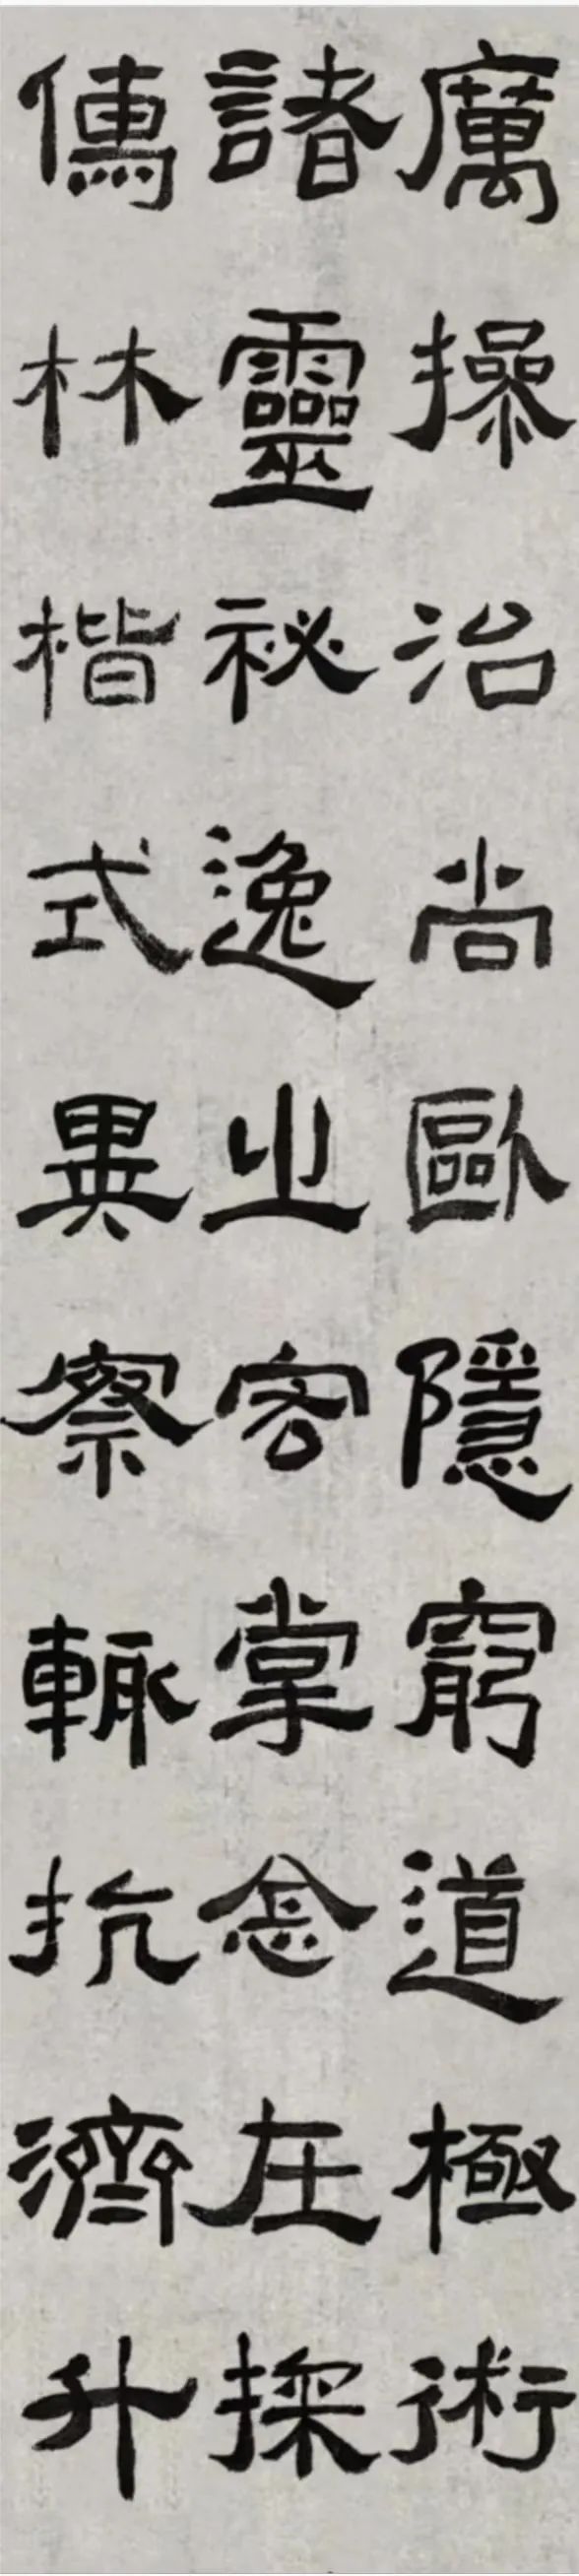 厲操治尚歐隱窮道極術
諸靈祕逸之客掌念在探
傳林楷式異察輒抗濟升